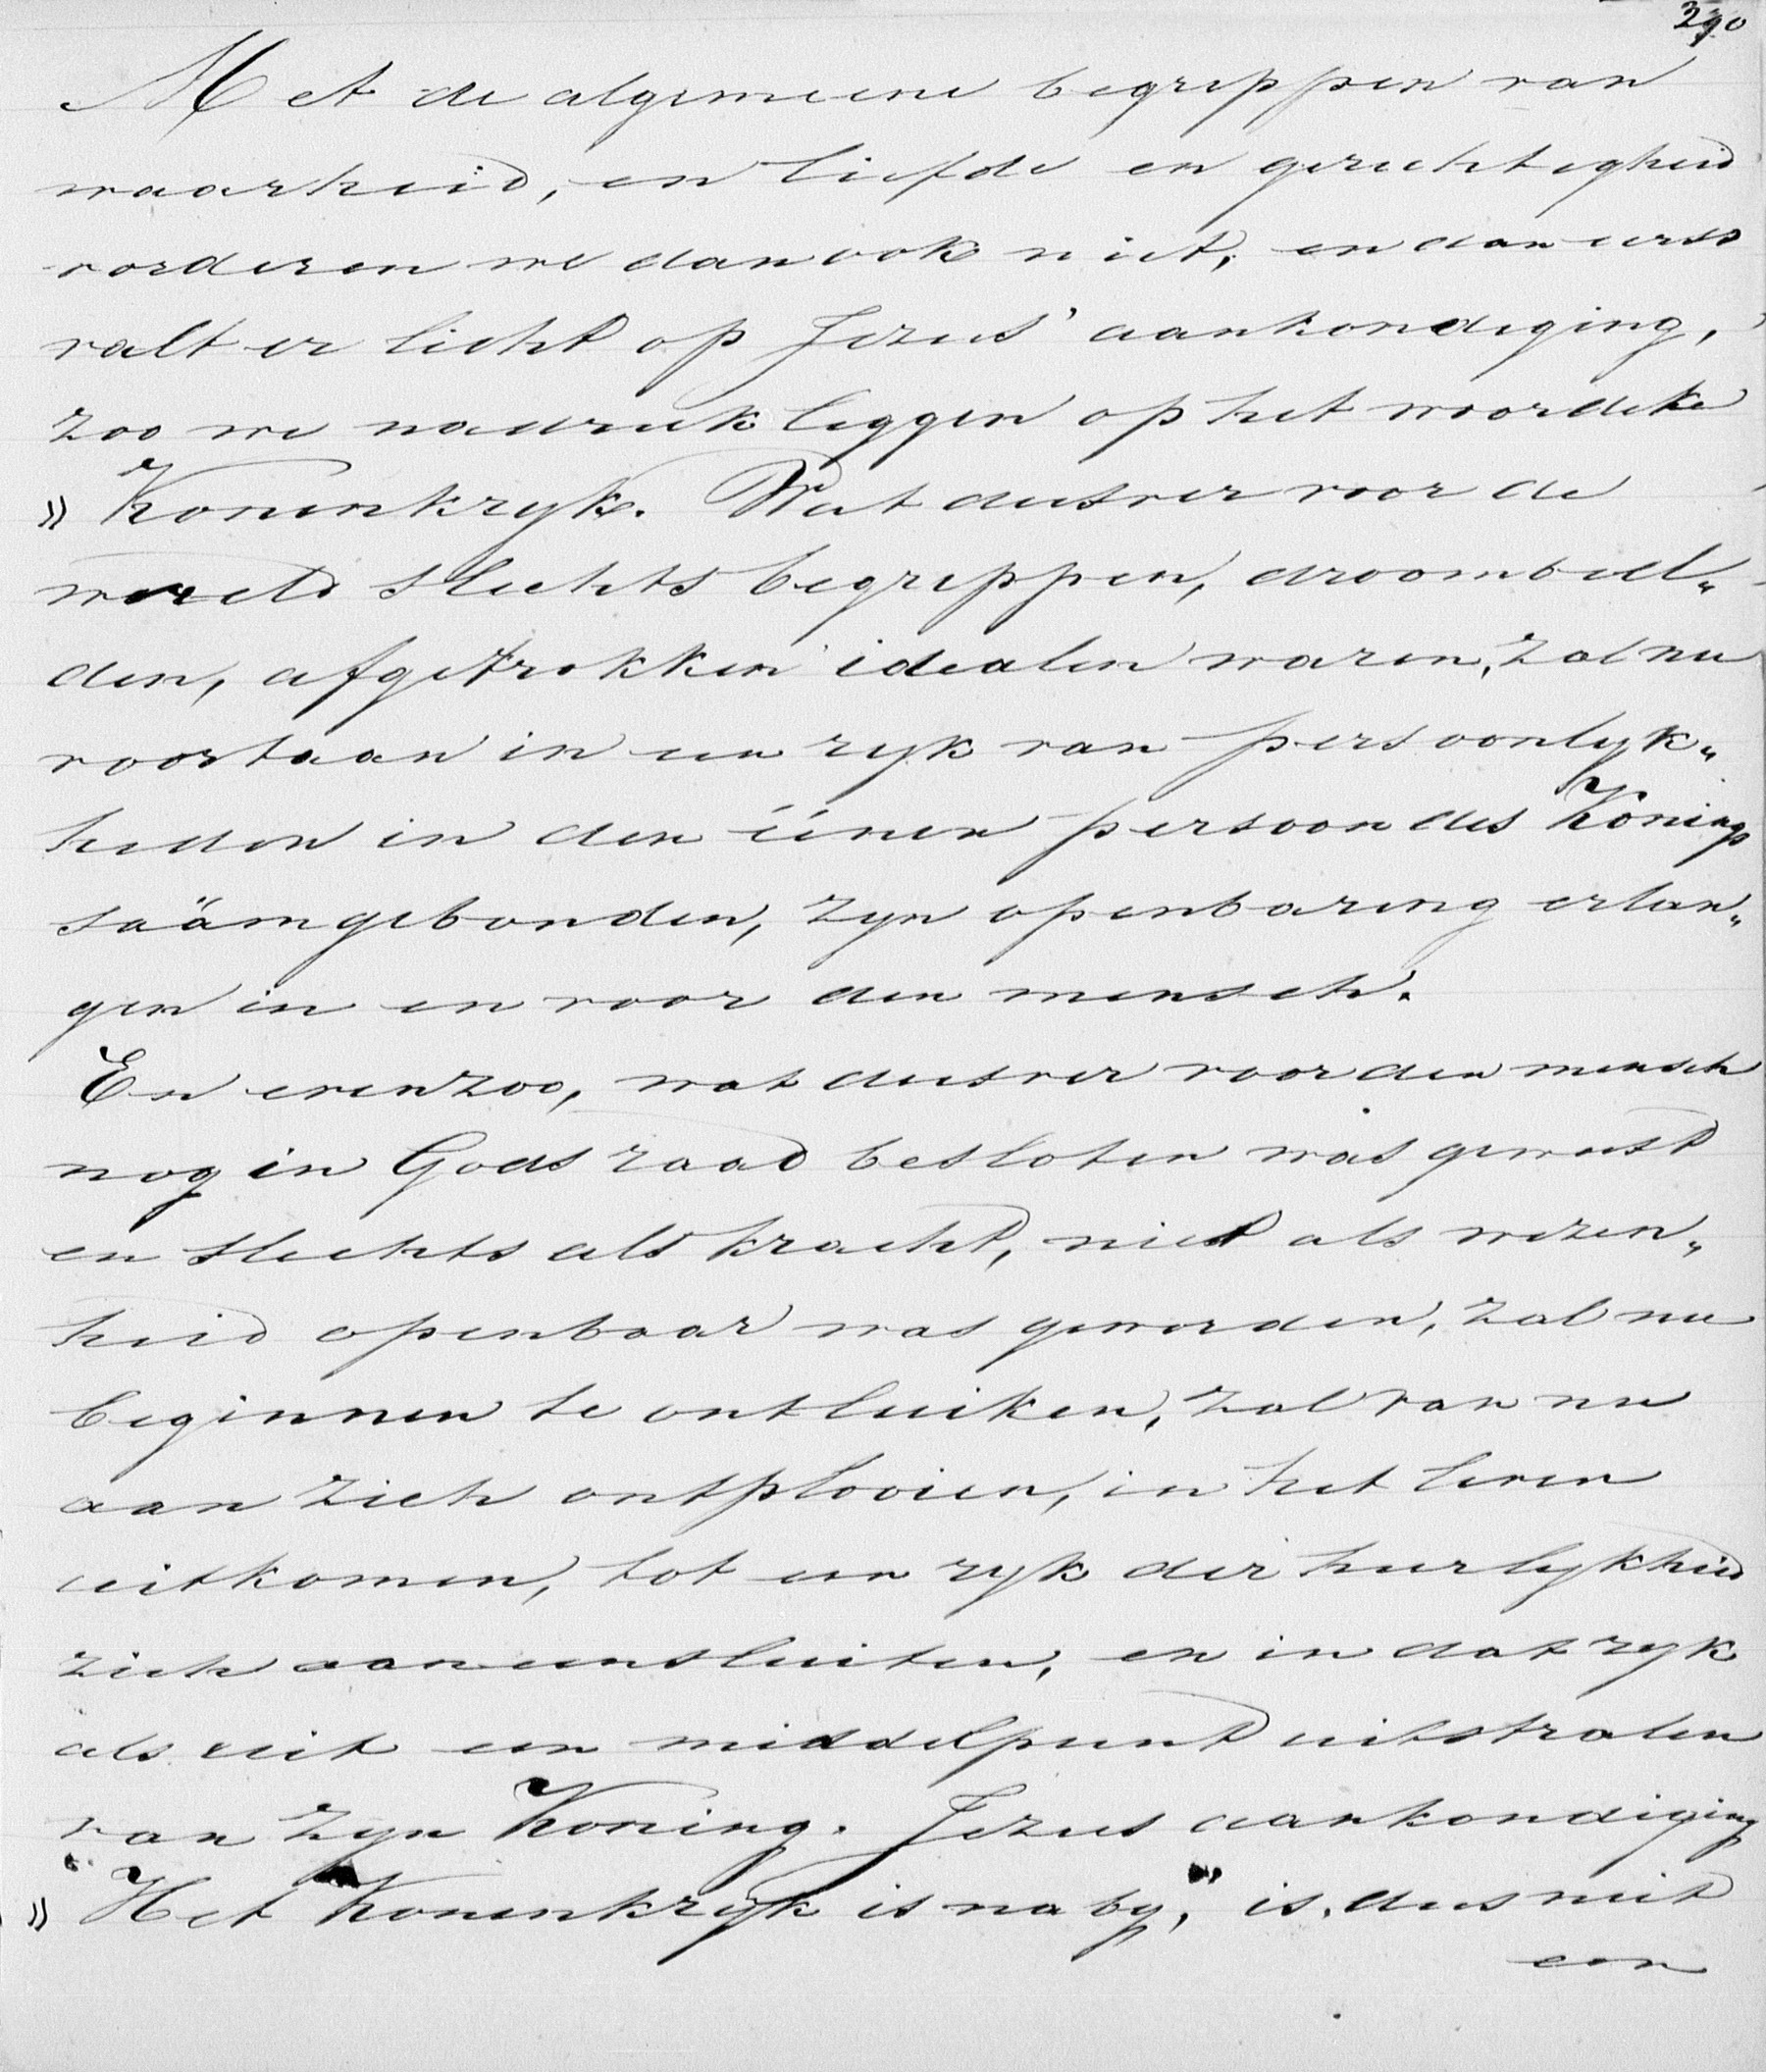 290
Met de algemeene begrippen van
waarheid, en liefde en gerechtigheid
vorderen we dan ook niet, en dan eerst
valt er licht op Jezus' aankondiging,
zoo we nadruk leggen op het woordeke
„Koninkryk. Wat dusver voor de
wereld slechts begrippen, droombeel„
den, afgetrokken idealen waren, zal nu
voortaan in een ryk van persoonlyk„
heden in den éénen persoon des Konings
saâmgebonden, zyn openbaring erlan„
gen in en voor den mensch.
En evenzoo, wat dusver voor den mensch
nog in Gods raad besloten was geweest
en slechts als kracht, niet als wezen„
heid openbaar was geworden, zal nu
beginnen te ontluiken, zal van nu
aan zich ontplooien, in het leven
uitkomen, tot een ryk der heerlykheid
zich aaneensluiten, en in dat ryk
als uit een middelpunt uitstralen
van zyn Koning. Jezus aankondiging
„Het Koninkryk is naby," is dus niet
een